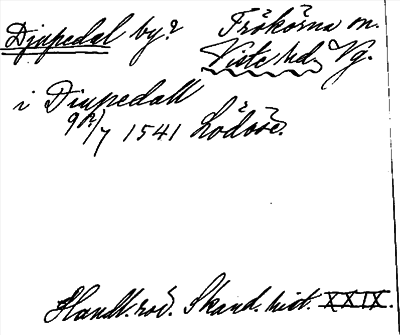 Djupedal by? Frökörna sn.
Viste hd. Vg.
i Diupedall
9/7 1541 Lödöse.
Handl. rör. Skand. hist. XXIX.